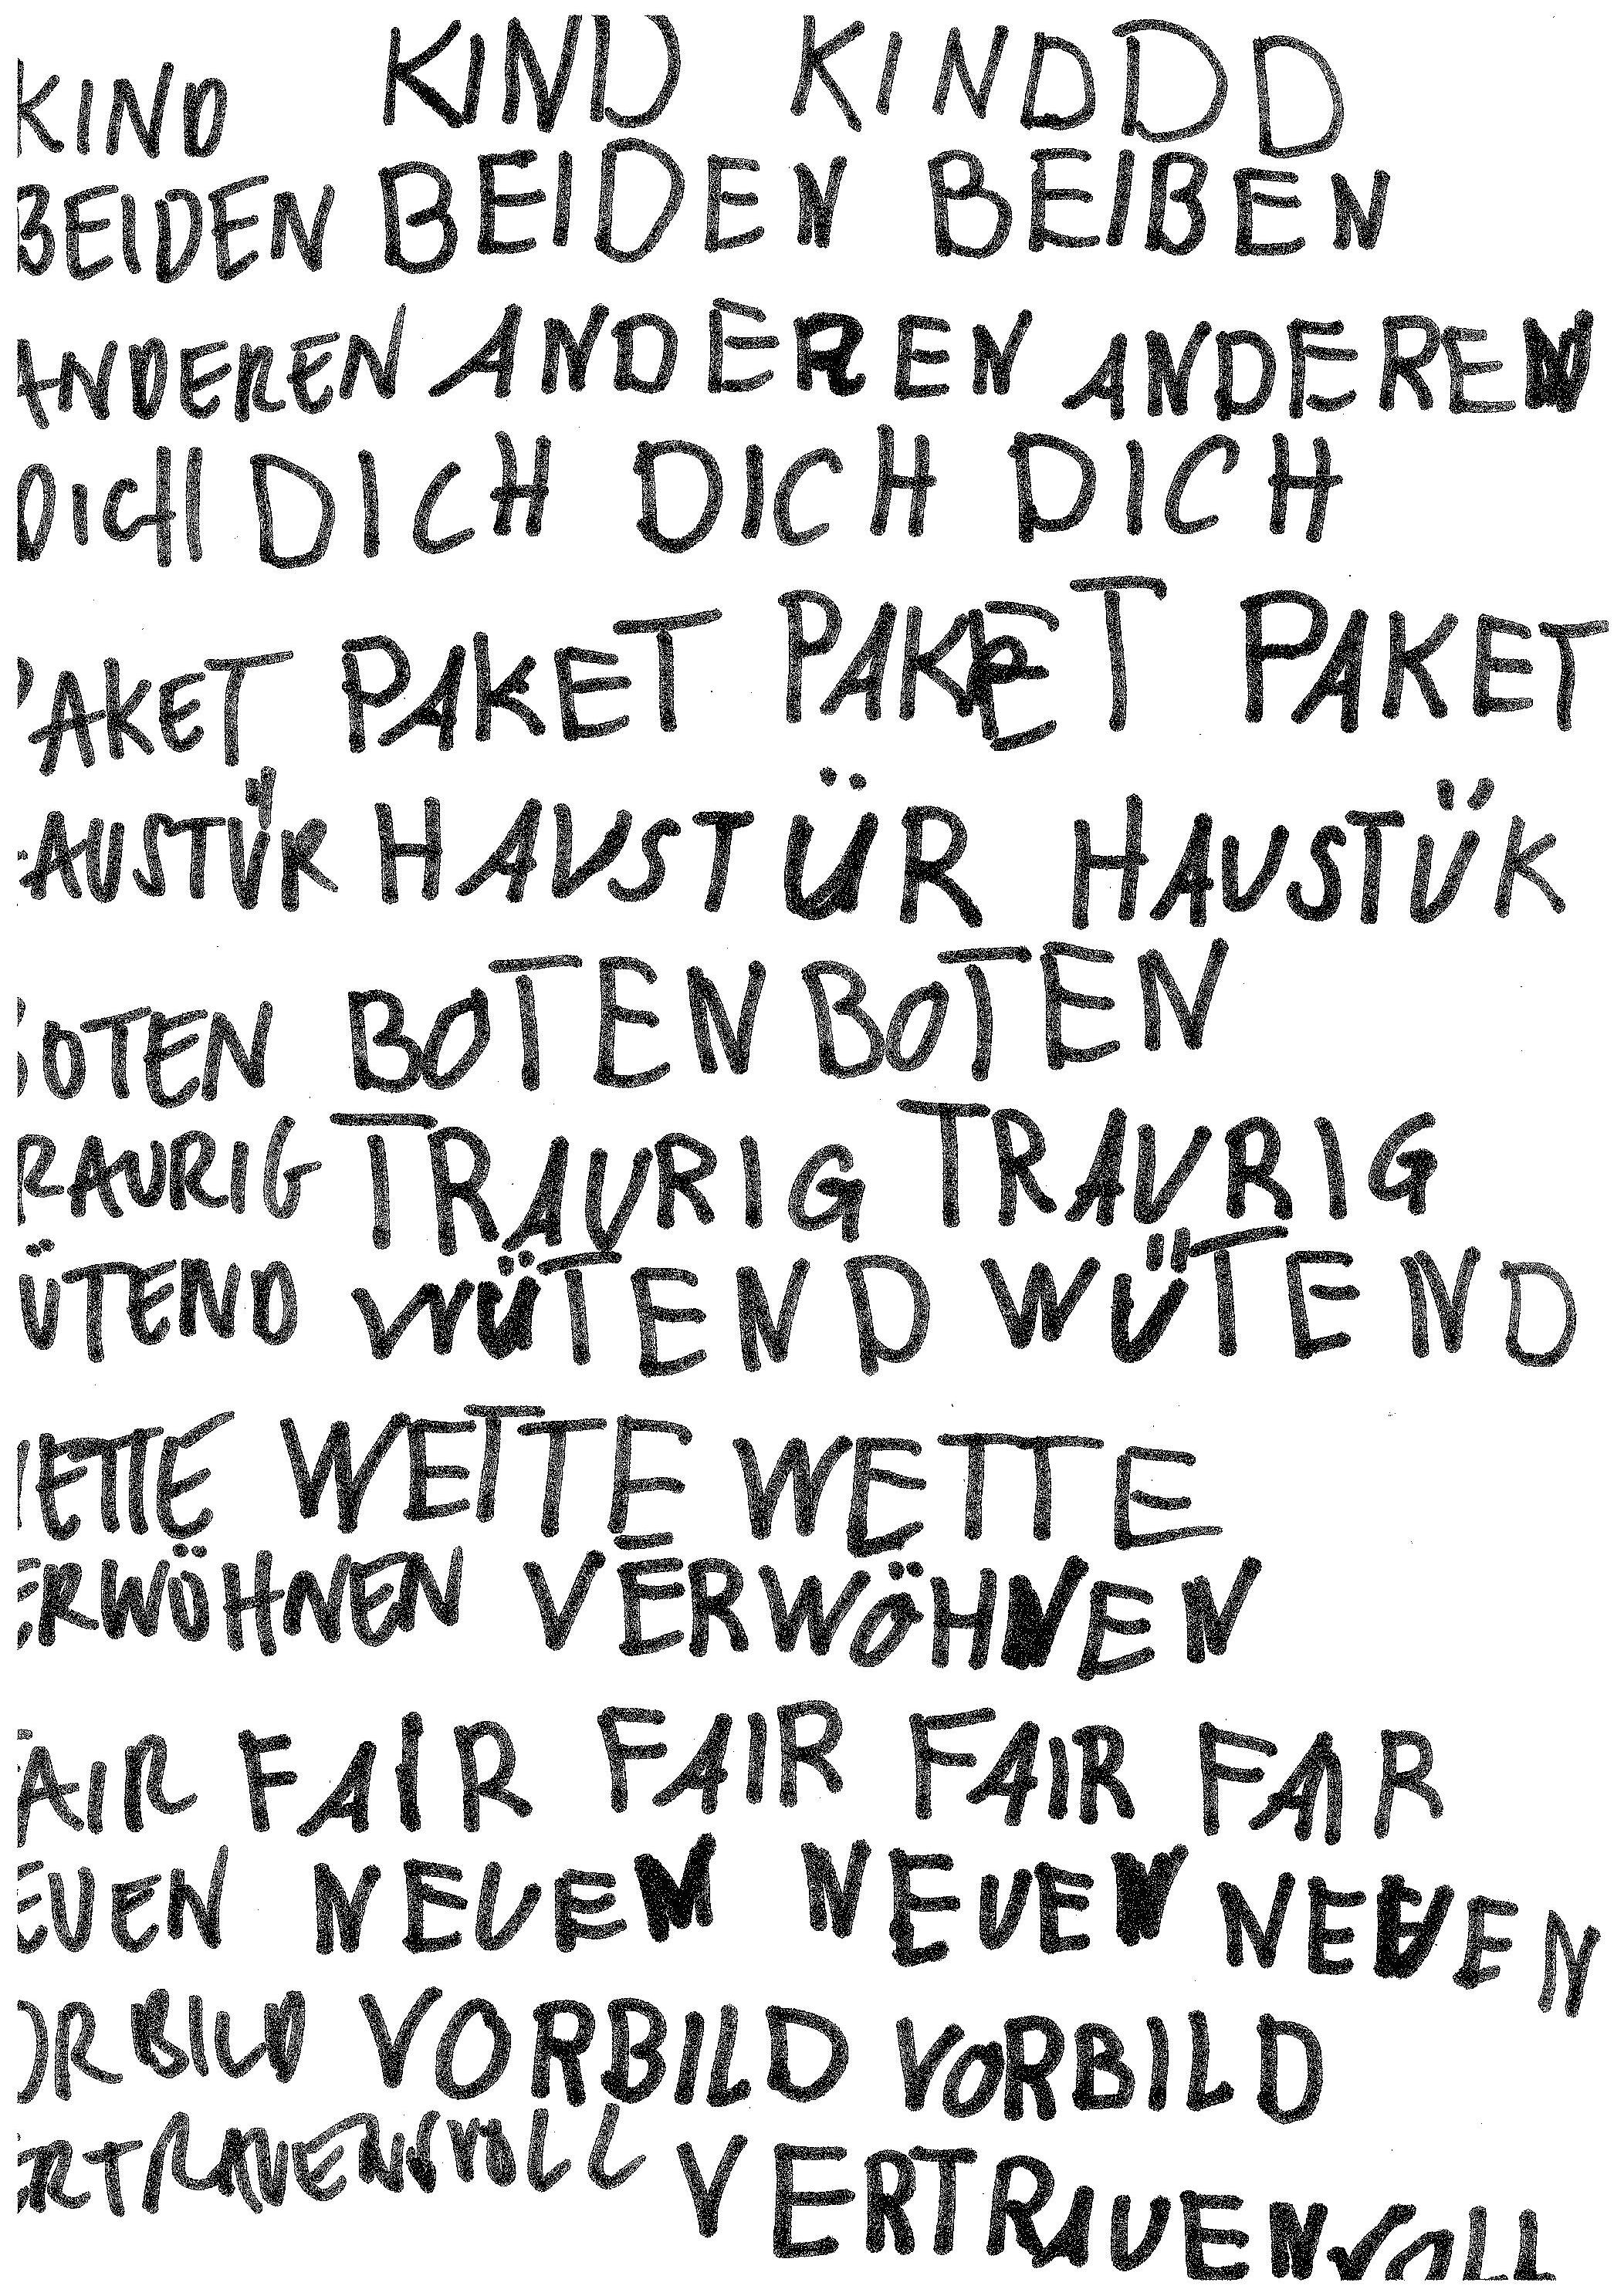 KIND KIND KINDDD
BEIDEN BEIDEN BEIBEN
ANDEREN ANDEREN ANDEREN
DICH DICH DICH DICH
PAKET PAKET PAKET PAKET
HAUSTÜR HAUSTÜR HAUSTÜK
BOTEN BOTEN BOTEN
RAURIG TRAURIG TRAURIG
ÜTEND WÜTEND WÜTEND
ETTE WETTE WETTE
ERWÖHNEN VERWÖHNEN
FAIR FAIR FAIR FAIR FAIR
EUEN NEUEN NEUEN NEUEN
ORBILD VORBILD VORBILD
ERTRAUENSVOLL VERTRAUENVOLL